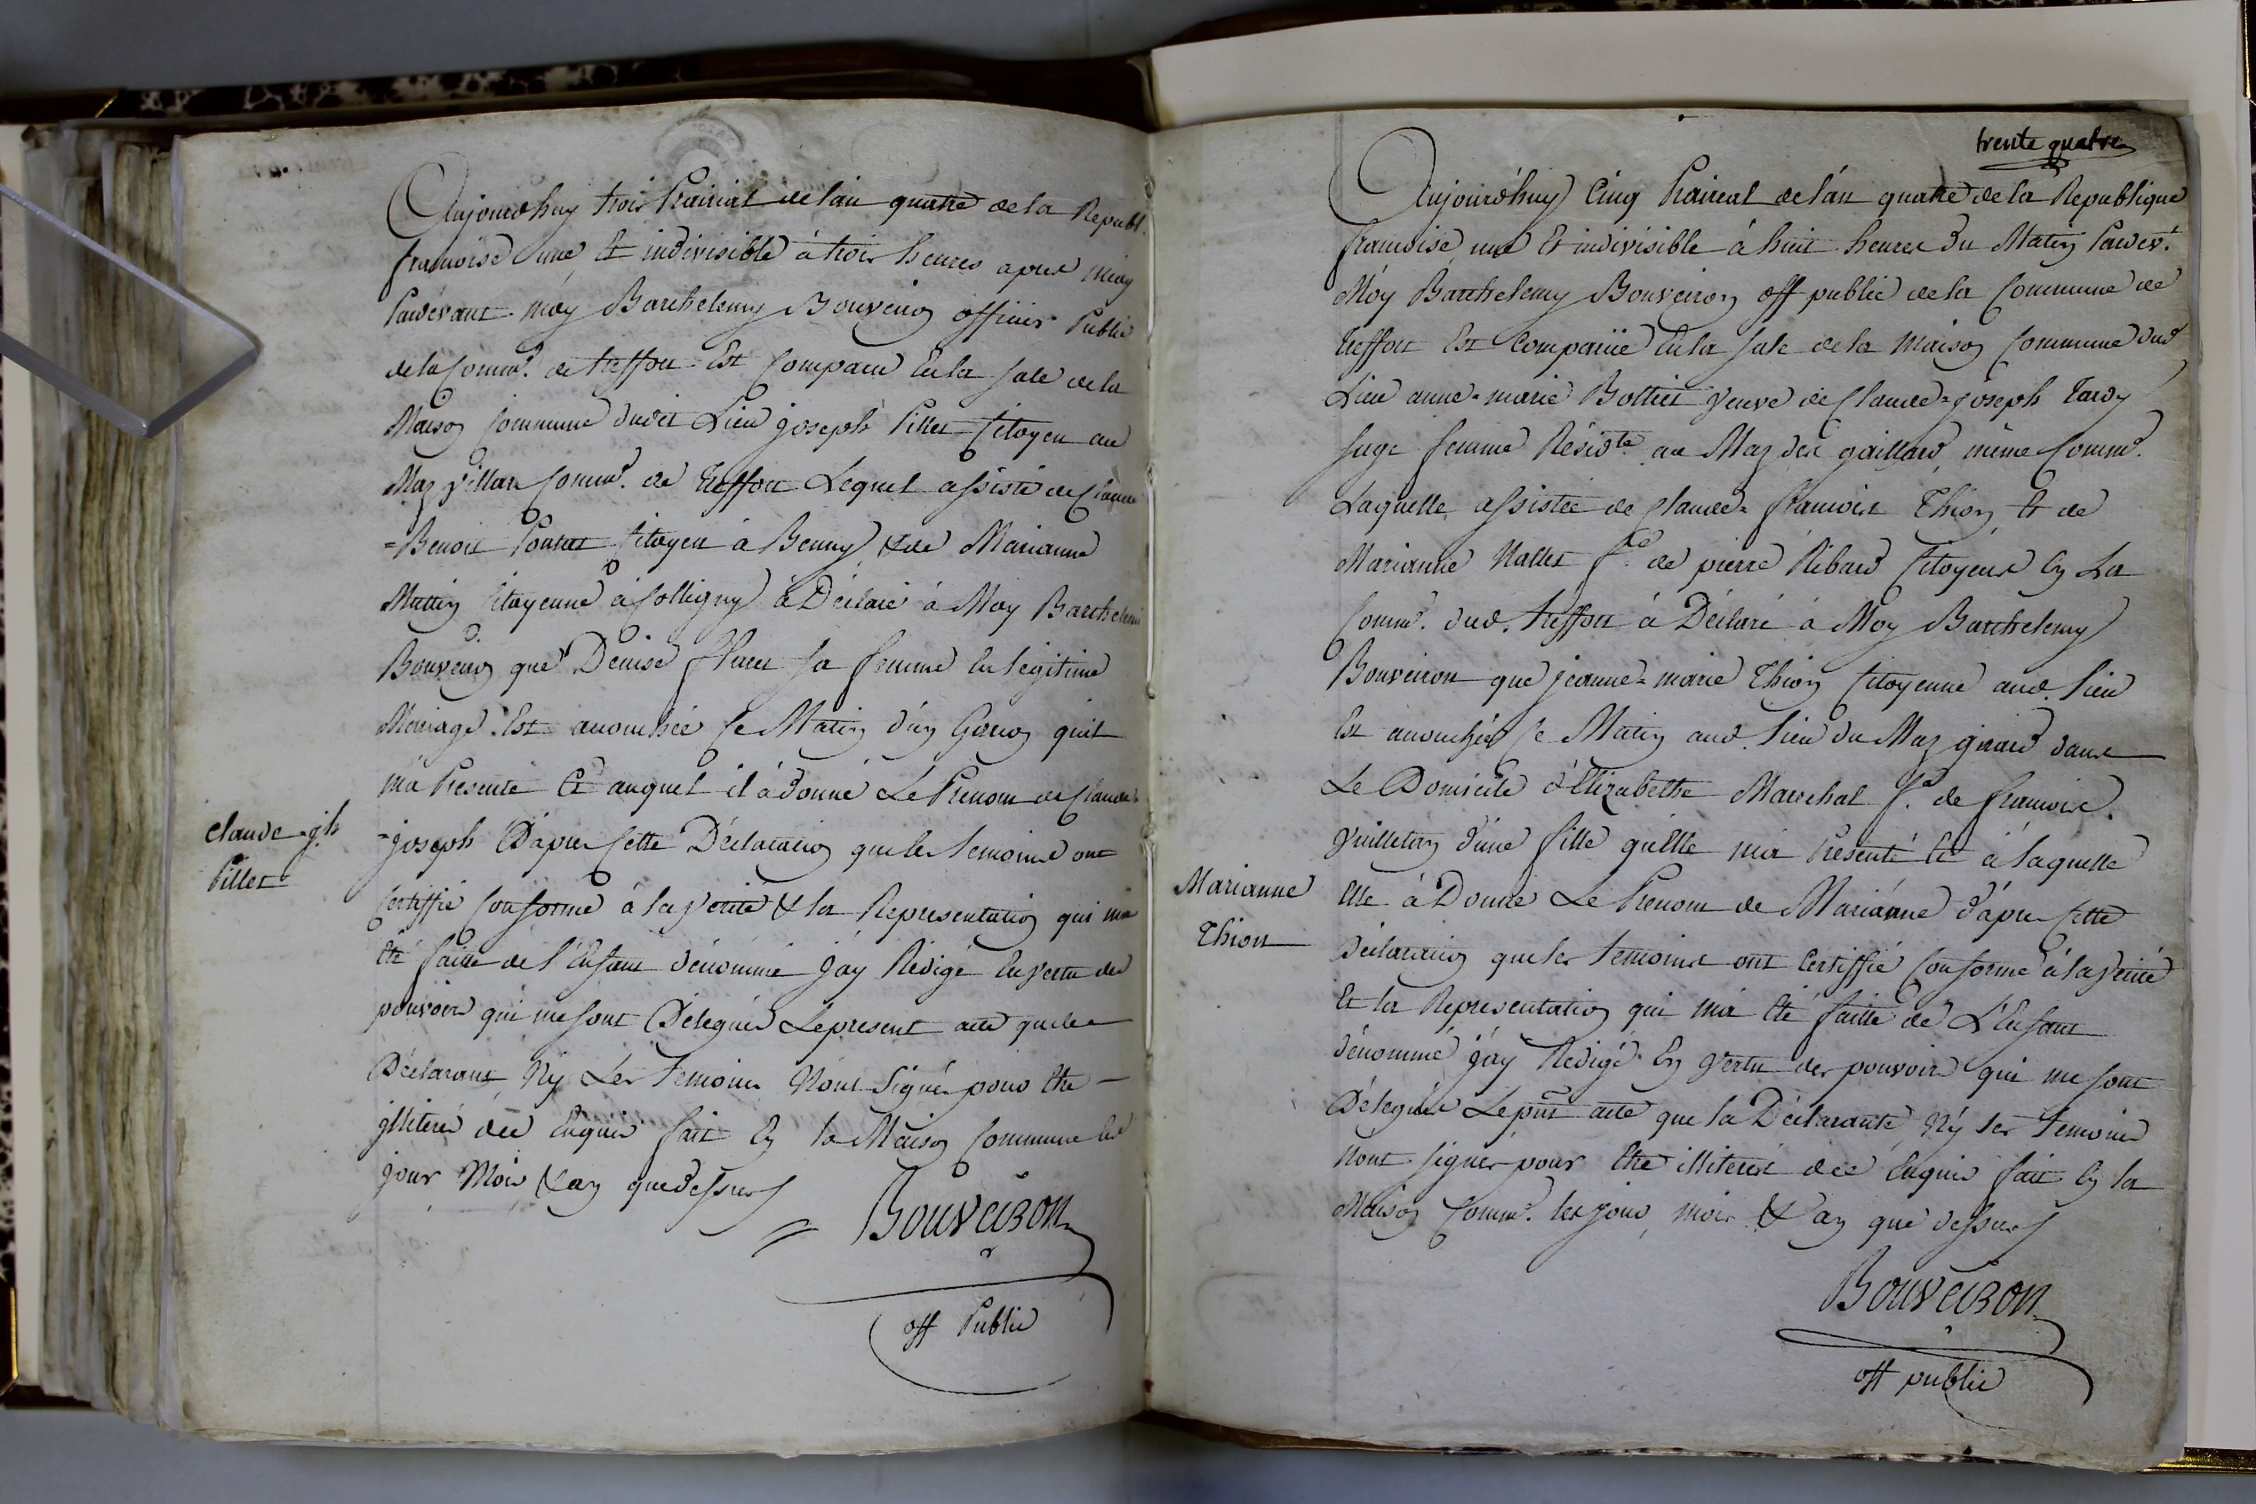 Aujourdhuy trois Prairial de lan quatre de la Republ.
francoise une Et indivisible à trois heures apres midy
Pardevant moy Barthelemy Bouveiron officier Public
de la Comm.e de treffort Est Comparu En la sale de la
Maison Commune dudit Lieu joseph Pillet Citoyen au
Maz villar Comm.e de Treffort Lequel assisté de Claude
=Benoit Citoyen à Benny & de Marianne
Mattin Citoyenne à Solligny à Déclaré à Moy Barthelemi
Bouveiron que Denise sa femme En legitime
Mariage Est accouchée ce Matin d'un Garcon quil
m'a Presenté Et auquel il à donné Lé Prenom de Claude=
=joseph D'apres Cette Déclaration que les temoins ont
Certiffié Conforme à la verité & la Representation qui m'a
été faitte de l'Enfant dénommé j'ay Rédigé En vertu des
pouvoirs qui me sont Délegués Le present acte que le
Déclarant Ny Les temoins N'ont Signés pour Etre
illiterés dée Enquis fait En la Maison Commune les
jour Mois & an que dessus
Bouveiron
off Public
Claude jh
Pillet
trente quatre
Aujourd'huy Cinq Prairial de l'an quatre de la Republique
francoise une Et indivisible à huit heures du Matin Pardev.t
Moy Barthelemy Bouveiron off public de la Commune de
Treffort Est Comparüe En la sale de la Maison Commune dud
Lieu anne=marie Bottier veuve de Claude=joseph Tardy
sage femme Résid.te au Maz des gaillard même Comm.e
Laquelle assistée de Claude=francois Thion Et de
Marianne Nallet f.e de pierre Ribard Citoyens En La
Comm.e dud. treffort à Déclaré à Moy Barthelemy
Bouveiron que jeanne=marie Thion Citoyenne aud. lieu
Est accouchée Ce Matin aud. lieu du Maz girard dans
Le Domicile d'Elizabethe Marechal f.e de francois
Guilleton d'une fille quElle m'a Presenté Et à laquelle
Elle à Donné Le Prenom de Marianne d'après Cette
Déclaration que les temoins ont Certiffié Conforme à la verité
Et la Representation qui m'a Eté faitte de L'Enfant
dénommé j'ay Rédigé En vertu des pouvoirs qui me sont
Délegués Le pñt acte que la Déclarante Ny les temoins
N'ont signés pour Etre illiterés dée Enquis fait En la
Maison Comm.e les jour, mois & an que dessus
Bouveiron
off public
Marianne
Thion